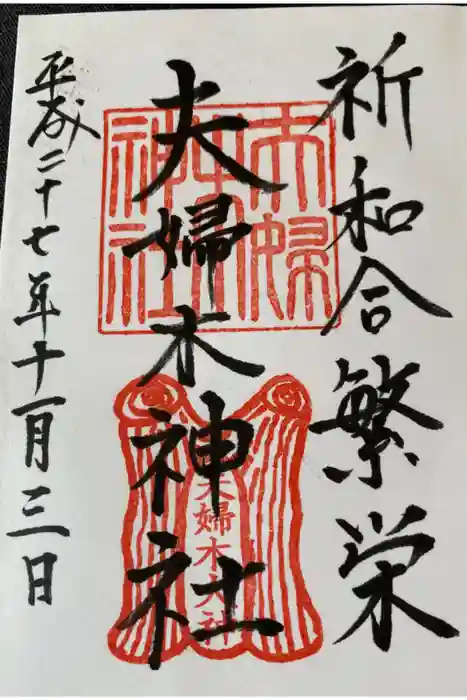 祈和合繁栄
夫婦木神社
夫婦木神社
夫婦木大神
平成二十七年十一月三日